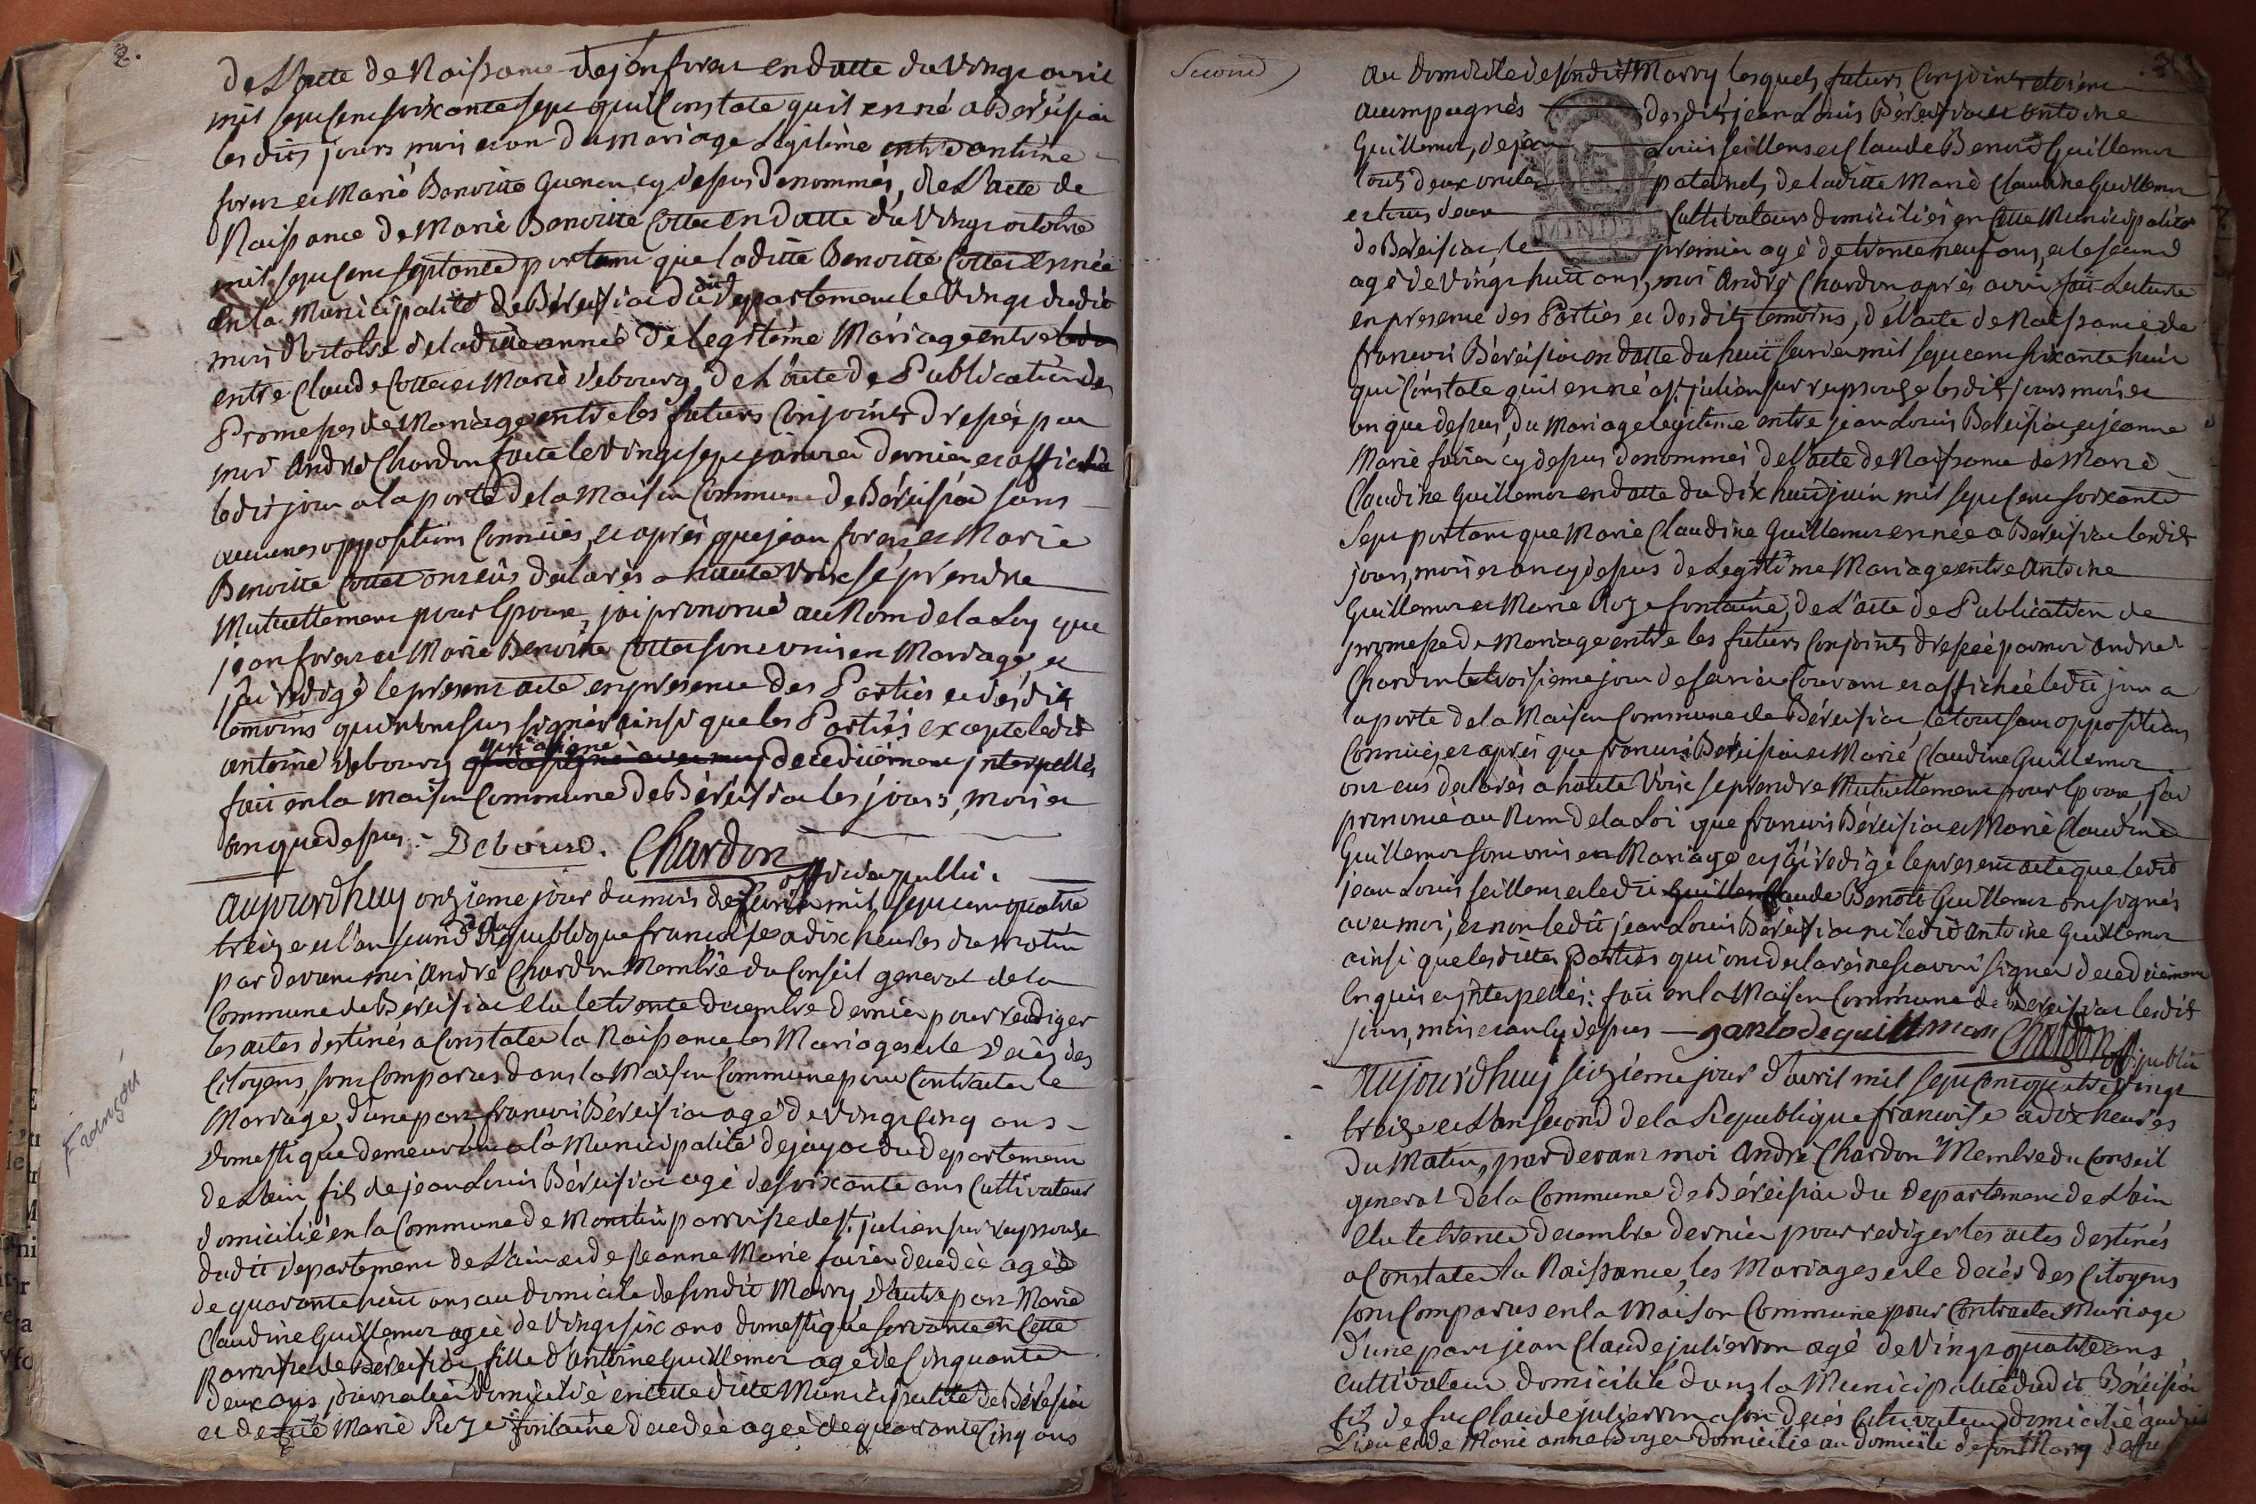 2.
de L'acte de Naissance de jean foras en datte du vingt avril
mil sept cent soixante sept qui Constate quil est né a Béréisiat
les dits jours mois et an du mariage Legitime entre antoine
foras et Marie Benoitte Guenen cy dessus denommés, de L'acte de
Naissance de Marie Benoitte Cottet en datte du vingt octobre
mil sept cent septante portant que laditte Benoitte Cottet est née
en la Municipalité de Béréisiat du dit departement le vingt dudit
mois d'octobre de la ditte année de legitime Mariage entre
entre Claude Cottet et Marie debourg, de L'acte de Publication des
Promesses de Mariage entre les futurs Conjoints dressée par
moi André Chardon faite le vingt sept janvier dernier et affichée
ledit jour a la porte de la Maison Commune de Béréisiat sans
aucunes oppositions Connuës, et après que jean foras et Marie
Benoitte Cottet ont eûs déclarés a haute voix se prendre
Mutuellement pour Epoux, j'ai prononcé au Nom de la Loy que
jean foras et Marie Benoitte Cottet sont unis en Mariage et
j'ai redigé le present acte en presence des Parties et desdits
temoins qui n'ont sus signér ainsi que les Parties excepté ledit
antoine debourg qui a signé de ce diïement interpellés
fait en la maison Commune de Béréisiat les jours, mois et
an que dessus. - Debourg. Chardon
officier public
aujourdhuy onzieme jour du mois de fevrier mil sept cent quatre
treize et l'an second de la Republique francaise a dix heures du matin
par devant moi, André Chardon Membre du Conseil general de la
Commune de Béréisiat elu le trente decembre dernier pour rediger
les actes destinés a Constater la Naissance, les Mariages et le décès des
Citoyens, sont Comparus dans la Maison Commune pour Contracter le
Mariage, d'une part francois Béréisiat agé de vingt cinq ans -
domestique demeurant a la Municipalité de jayat du departement
de L'ain fils de jean Louis Béréisiat agé de soixante ans Cultivateur
domicilié en la Commune de Montin parroisse de st. julien sur reyssouse
dudit departement de L'ain et de Jeanne Marie favier decedée agée
de quarante huit ans au domicile de sondit Marry d'autre part Marie
Claudine Guillemor agée de vingt six ans domestique servante en Cette
parroisse de Béréisiat, fille d'antoine Guillemor agé de Cinquante
deux ans journalier domicilié en cette ditte Municipalité de Béréisiat
et de Marie Roze fontaine decedée agée de quarante Cinq ans
François
Second
au domicile de sondit Marry lesquels futurs Conjoints etoient
accompagnés desdits jean Louis Béréisiat et antoine
Guillemor, de jean Louis Seillens et Claude Benoit Guillemor
tous deux oncles paternels de laditte Marie Claudine Guillemor
et tous deux Cultivateurs domiciliés en Cette Municipalité
de Béréisiat, le premier agé de trente neuf ans, et le second
agé de vingt huit ans, moi André Chardon après avoir fait Lecture
en presence des Parties et desdits temoins, de l'acte de Naissance de
francois Béréisiat en datte du huit fevrier mil sept cent soixante huit
qui Constate quil est né a st. julien sur reyssouse les dits jours mois et
an que dessus, du Mariage legitime entre jean Louis Béréisiat, et jeanne
Marie favier cy dessus denommés de l'acte de Naissance de Marie
Claudine Guillemor en datte du dix huit juin mil sept cent soixante
Sept portant que Marie Claudine Guillemor est née a Béréisiat lesdits
jours, mois et an cy dessus de Legitime Mariage entre Antoine
Guillemor et Marie Roze fontaine, de L'acte de Publication de
promesse de Mariage entre les futurs Conjoints dressée par moi André
Chardon le troisieme jour de fevrier Courant et affichée ledit jour a
la porte de la Maison Commune de Béréisiat, le tout sans oppositions
Connuës et après que francois Béréisiat et Marie Claudine Guillemor
ont eus déclarés a haute Voix se prendre Mutuellement pour Epoux, j'ai
prononcé au Nom de la Loi que francois Béréisiat et Marie Claudine
Guillemor sont unis en Mariage et j'ai redigé le present acte que ledit
jean Louis Seillens et ledit Claude Benoit Guillemor ont signés
avec moi, et non ledit jean Louis Béréisiat ni ledit Antoine Guillemor
ainsi que les dittes Parties qui ont declarés ne scavoir signer de ce diïement
Enquis et interpellés: fait en la Maison Commune de Béréisiat lesdits
jours, mois et an cy dessus - Chardon off. public
aujourdhuy seizième jour d'avril mil sept cent quatre vingt
treize et L'an second de la Republique francoise a dix heures
du Matin, par devant moi André Chardon Membre du Conseil
general de la Commune de Béréisiat du departement de L'ain
elu le trente decembre dernier pour rediger les actes destinés
a Constater la Naissance, les Mariages et le decès des Citoyens
sont Comparus en la Maison Commune pour Contracter Mariage
d'une part jean Claude julierron agé de vingt quatre ans
cultivateur domicilié dans la Municipalité dudit Béréisiat
fils de feu Claude julierron a son decés Cultivateur domicilié audit
Lieu et de Marie anne Boyer domicilié au domicile de son Marry